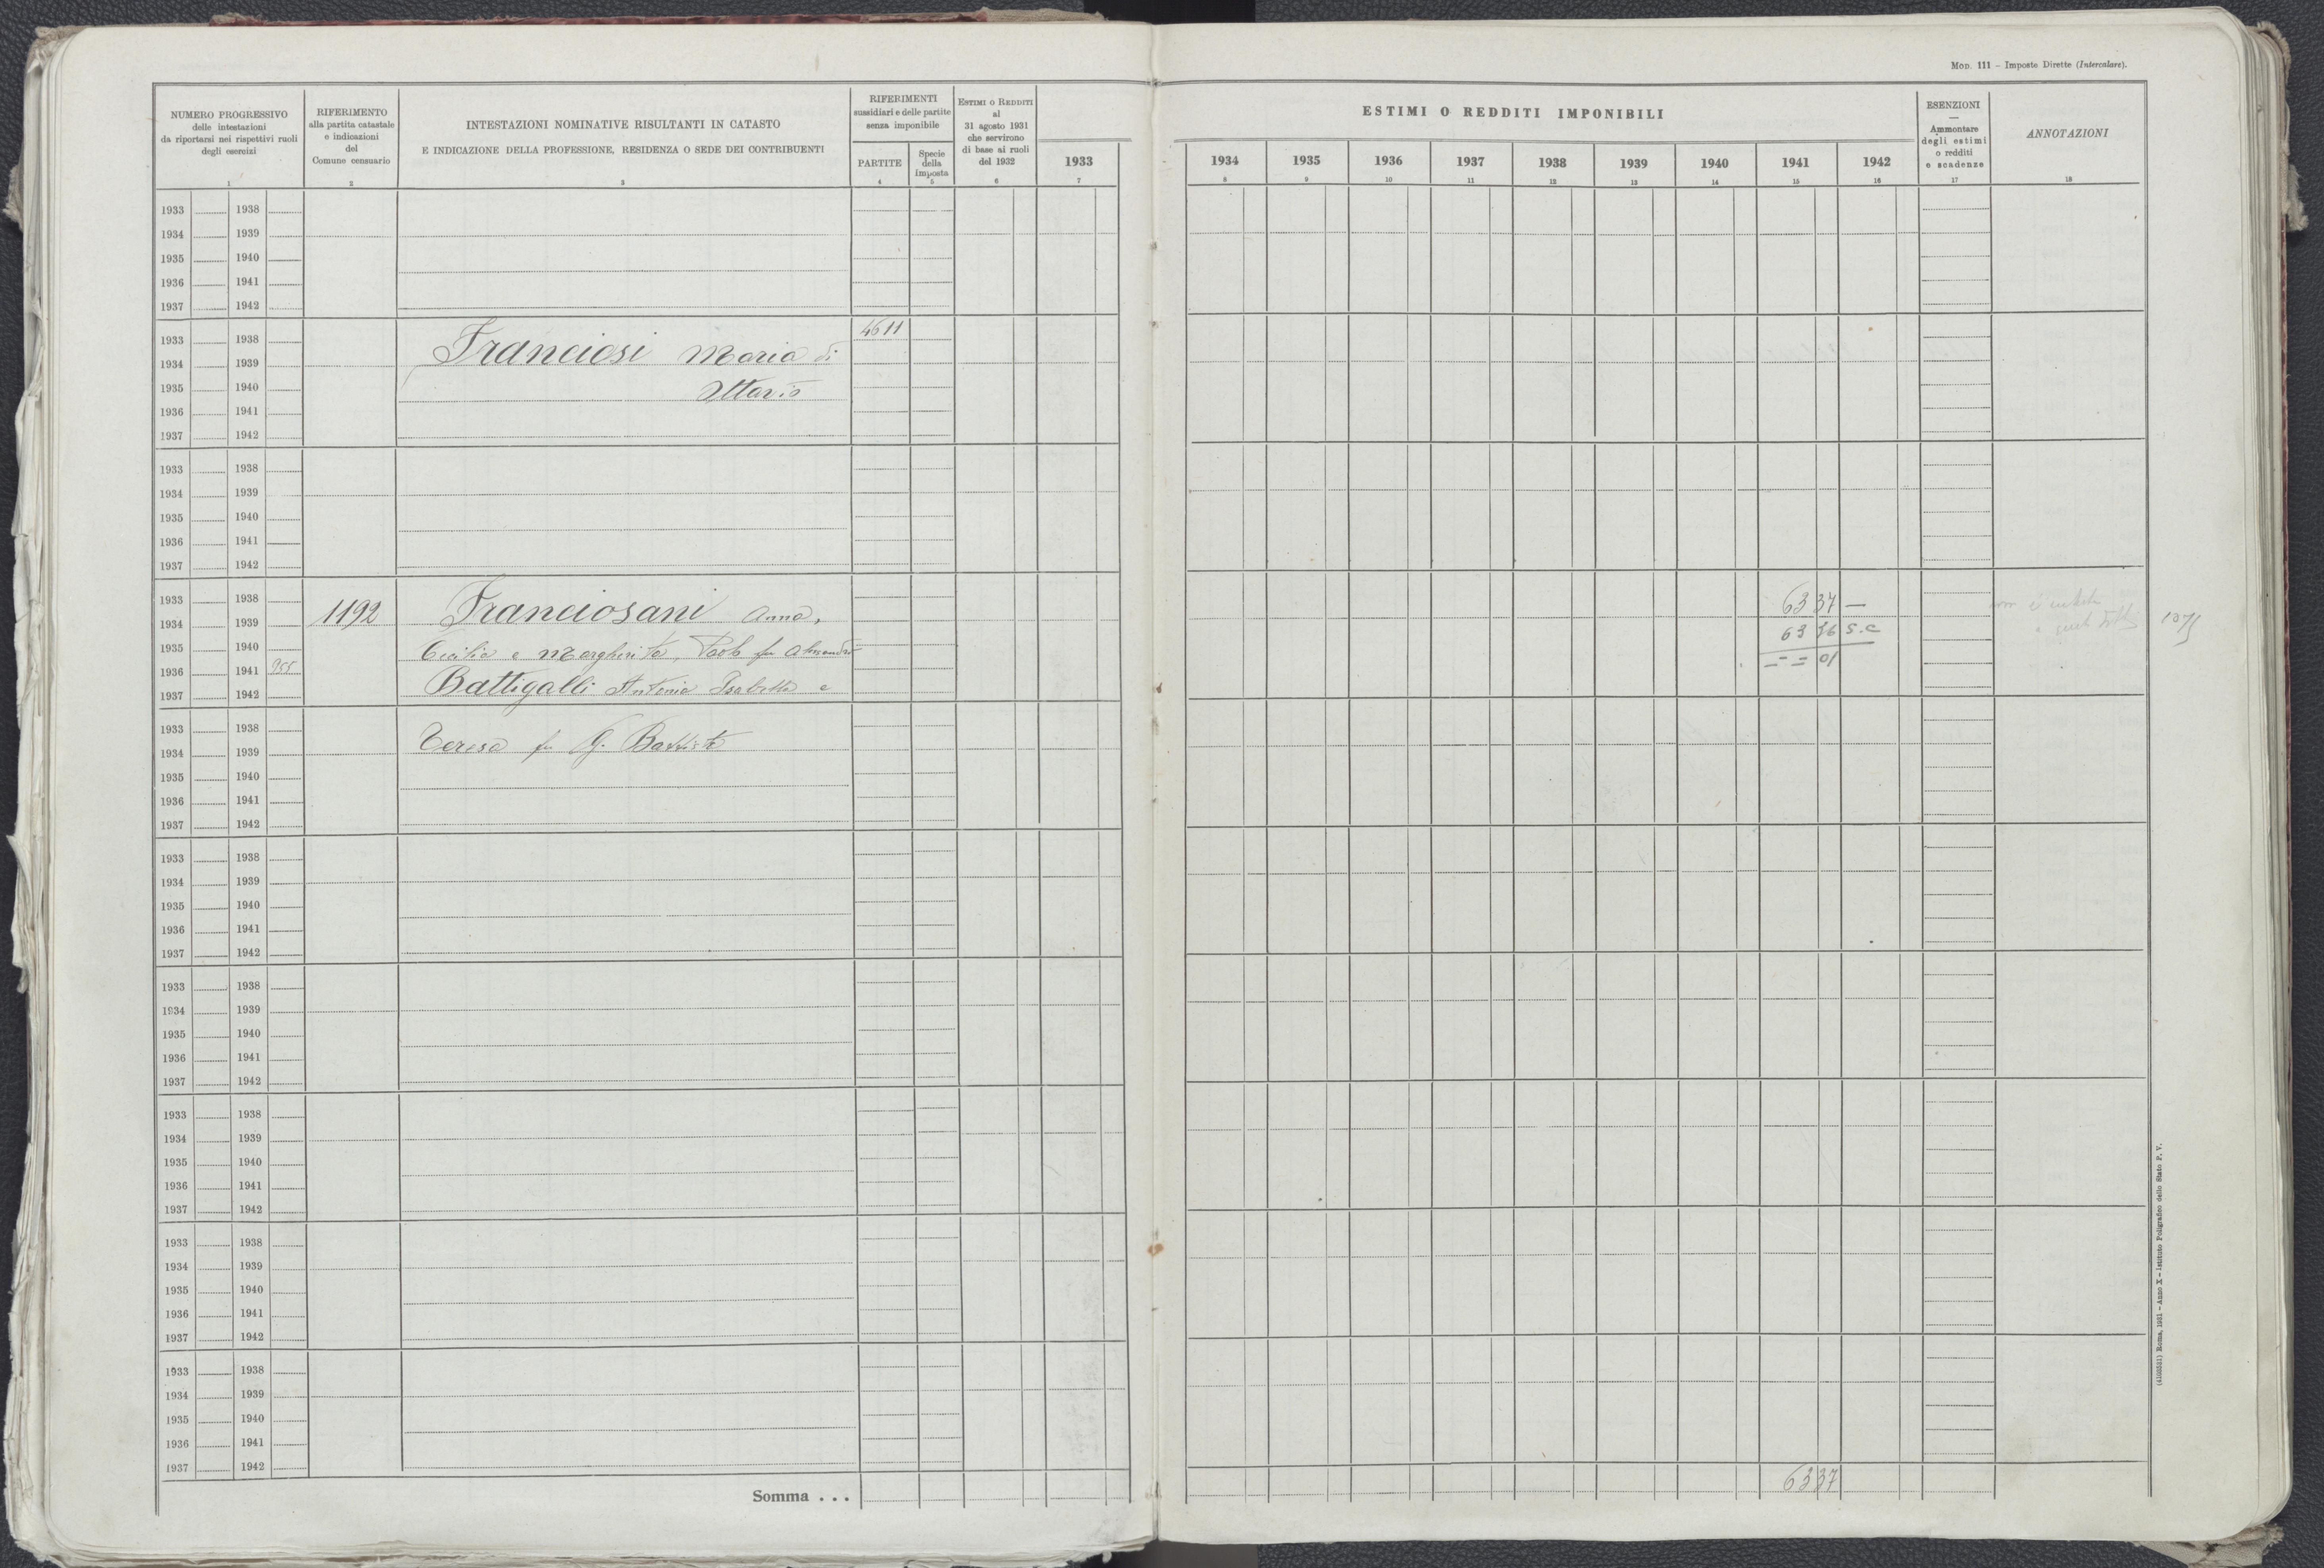 MOD. 111 - Imposte Dirette (Intercalare).
NUMERO PROGRESSIVO
delle intestazioni
da riportarsi nei rispettivi ruoli
degli esercizi
1
RIFERIMENTO
alla partita catastale
e indicazioni
del
Comune censuario
2
INTESTAZIONI NOMINATIVE RISULTANTI IN CATASTO
E INDICAZIONE DELLA PROFESSIONE, RESIDENZA O SEDE DEI CONTRIBUENTI
3
RIFERIMENTI
sussidiari e delle partite
senza imponibile
PARTITE
4
Specie
della
imposta
5
ESTIMI O REDDITI
al
31 agosto 1931
che servirono
di base ai ruoli
del 1932
6
1933
7
ESTIMI O REDDITI IMPONIBILI
1934 1935 1936 1937 1938 1939 1940 1941 1942
8 9 10 11 12 13 14 15 16
ESENZIONI
—
Ammontare
degli estimi
o redditi
e scadenze
17
ANNOTAZIONI
18
1933 1938
1934 1939
1935 1940
1936 1941
1937 1942
1933 1938 4611
1934 1939 Franciosi Maria di
1935 1940 Ottavio
1936 1941
1937 1942
1933 1938
1934 1939
1935 1940
1936 1941
1937 1942
1933 1938 6337 —
1934 1939 1192 Franciosani Anna,
1935 1940 Cecilia e Margherita, Paolo fu Alessandro 6336 S.C
1936 1941 955 = = 01
1937 1942 Battigalli Antonia Isabella e
1933 1938
1934 1939 Teresa fu G. Battista
1935 1940
1936 1941
1937 1942
1933 1938
1934 1939
1935 1940
1936 1941
1937 1942
1933 1938
1934 1939
1935 1940
1936 1941
1937 1942
1933 1938
1934 1939
1935 1940
1936 1941
1937 1942
1933 1938
1934 1939
1935 1940
1936 1941
1937 1942
1933 1938
1934 1939
1935 1940
1936 1941
1937 1942
Somma . . . 6337
(4103521) Roma, 1931 - Anno X - Istituto Poligrafico dello Stato P. V.